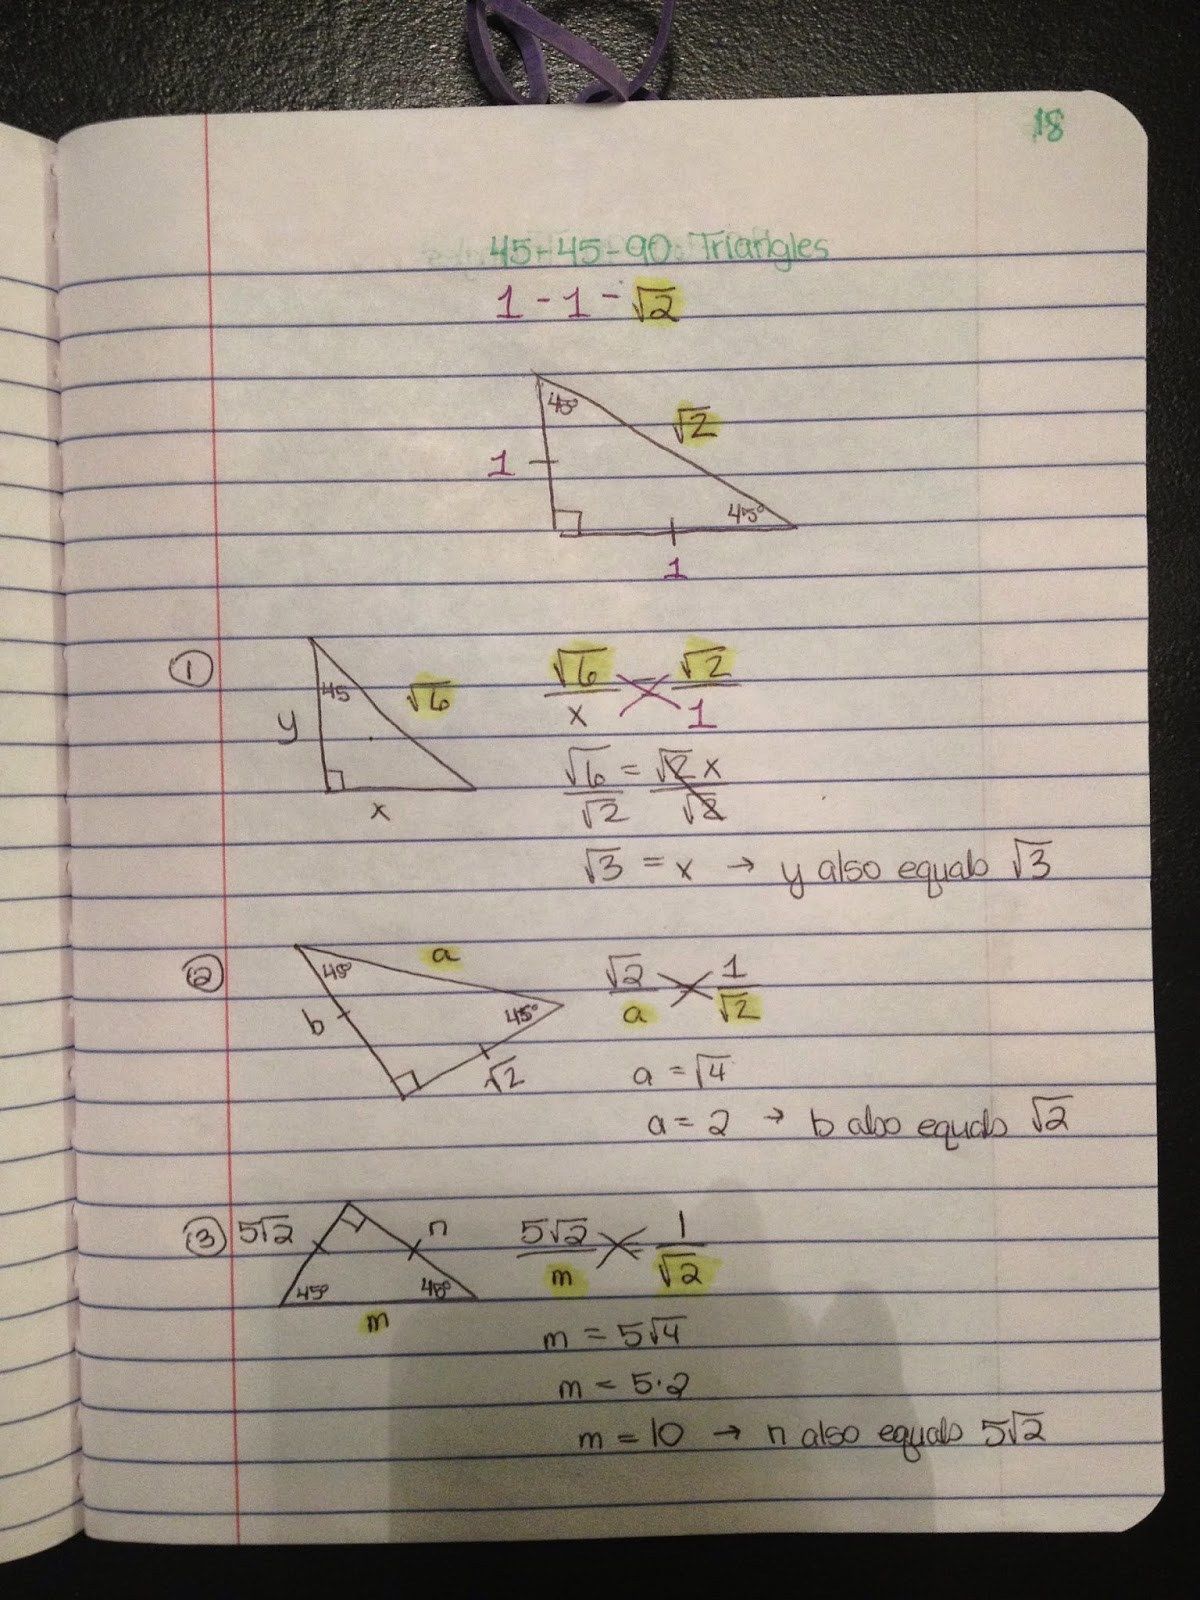 18
45-45-90 Triangles
1 - 1 - √2
45°
√2
1
45°
1
①
45
√6
y
x
√6/x = √2/1
√6/√2 = √2x/√2
√3 = x → y also equals √3
②
a
45°
45°
b
√2
√2/a = 1/√2
a = √4
a = 2 → b also equals √2
③ 5√2
n
45°
45°
m
5√2/m = 1/√2
m = 5√4
m = 5·2
m = 10 → n also equals 5√2